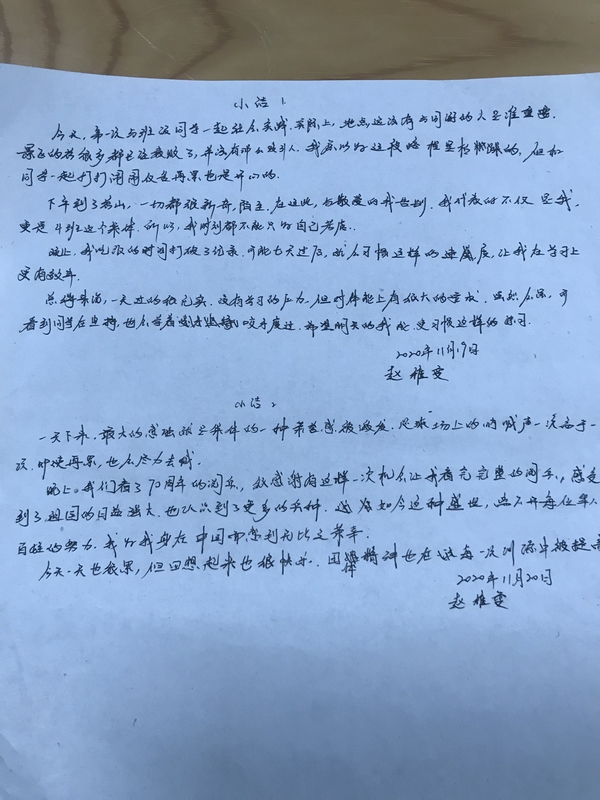 小结 1
今天,第一次与班级同学一起社会实践,实际上,地点这没有与同困的人是谁重要.
景区的若很多都已经衰败了,并没有那么吸引人.我原以为这段路程是枯燥的,但和
同学一起打打闹闹仅是再累也是开心的.
下午到了老山,一切都很新奇,陌生.在这里,与敬爱的我告别.我代表的不仅是我,
更是4班这个集体,所以,我时刻都不能只为自己考虑.
晚上,我吃饭的时间打破了纪录.可能七天过后,我会习惯这样的速度,让我在学习上
更有效率.
总得来说,一天过的很充实.没有学习的压力,但对体能上有很大的要求.虽然会累,可
看到同学在坚持,也会学着咬牙度过.希望明天的我能更习惯这样的练习.
2020年11月19日
赵雅雯
小结 2
一天下来,最大的感触就是集体的一种荣誉感被激发.足球场上的呐喊声一次高于一
次,即使再累,也会尽力去喊.
晚上,我们看了70周年的阅兵,很感谢有这样一次机会让我看完完整的阅兵,感受
到了祖国的日益强大,也认识到了更多的兵种.这发如今这种盛世,离不开每位军人
百姓的努力.我为我身在中国而感到无比之荣幸.
今天一天也很累,但回想起来也很快乐.团体精神也在这每一次训练中被提高
2020年11月20日
赵雅雯